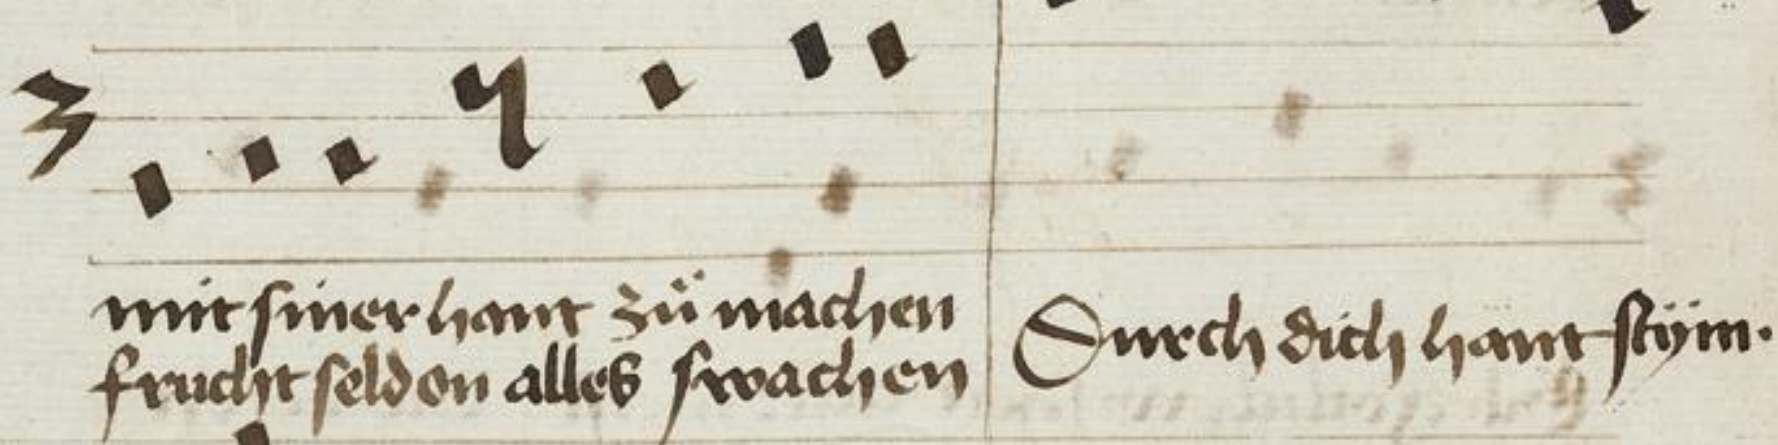 mit siner hant zü machen
frucht seldon alles swachen
Durch dich hänt stÿm.